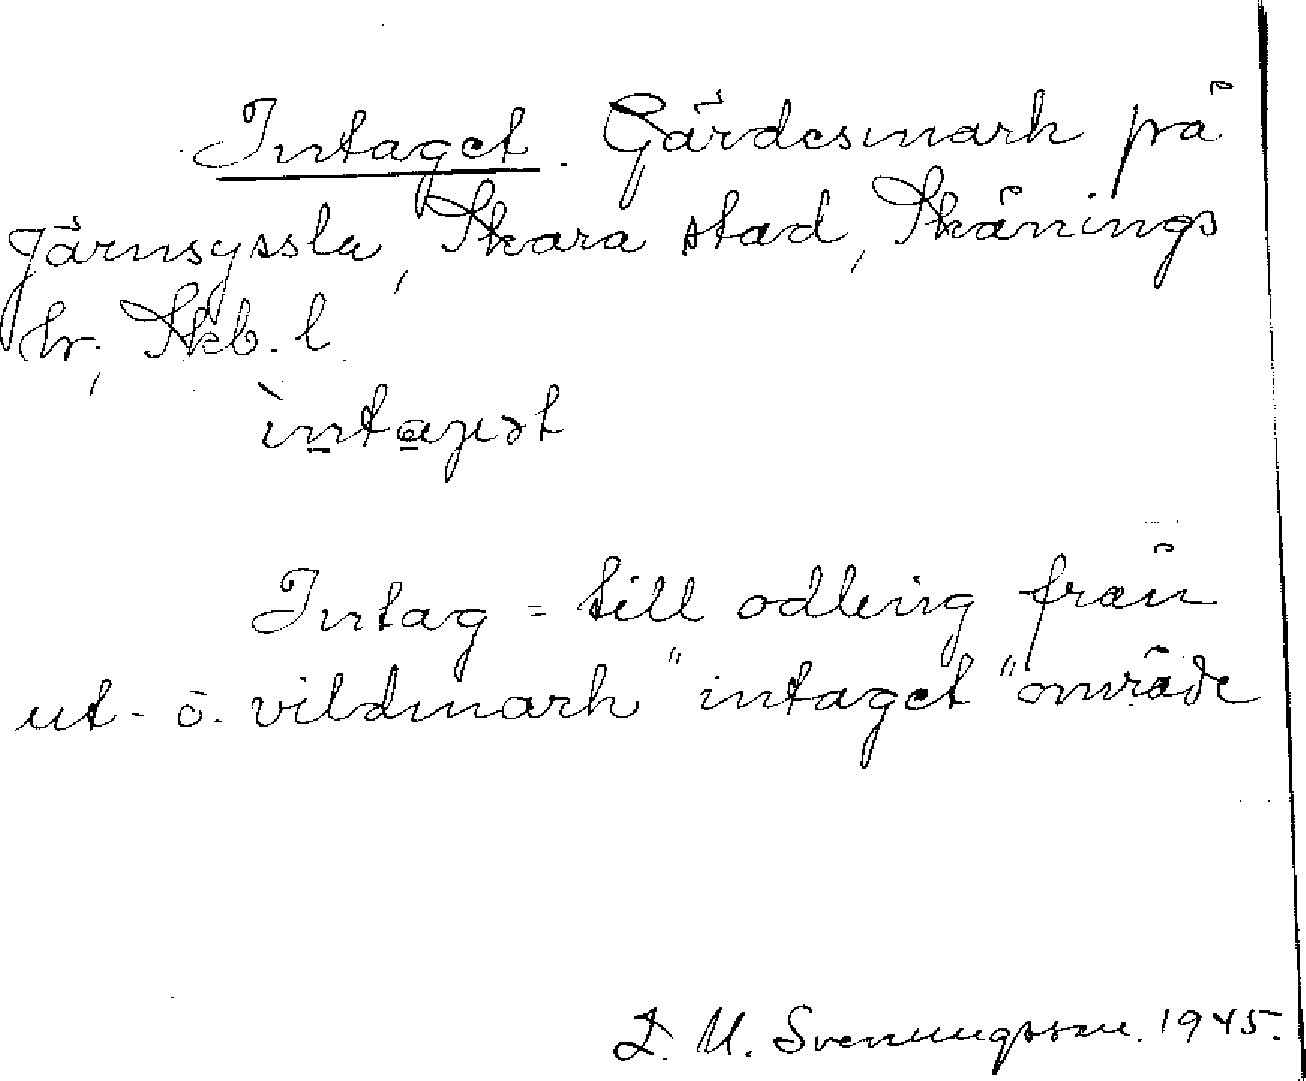 Intaget. Gärdesmark på
Järnsyssla, Skara stad, Skånings
hr, Skb. l.
Intag = till odling från
ut- o. vildmark "intaget" område
D. U. Svenungsson. 1945.